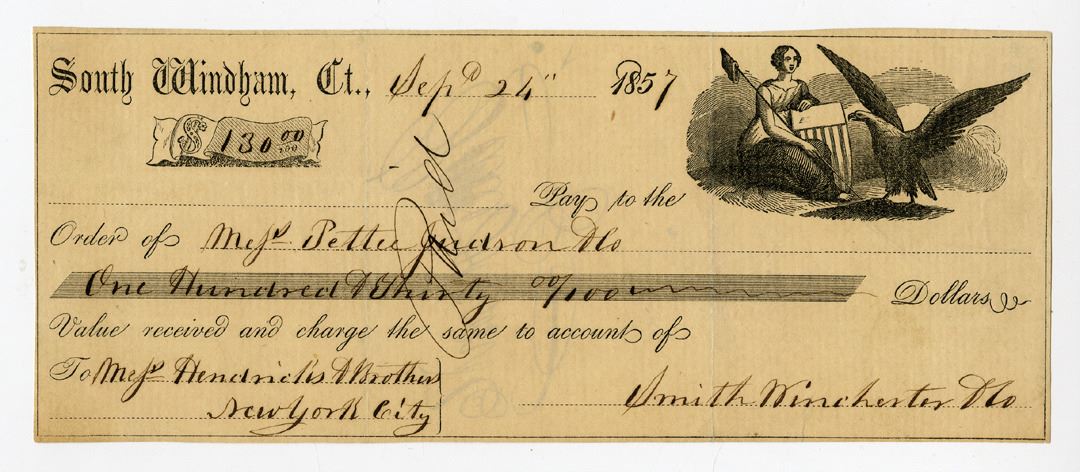 South Windham, Ct., Sep^r 24" 1857
$ 130 00/100
Pay to the
Order of Mess^rs Pettee Judson & Co
One Hundred & Thirty 00/100 Dollars
Value received and charge the same to account of
To Mess^rs Hendricks & Brothers
New York City
Smith Winchester & Co
Paid